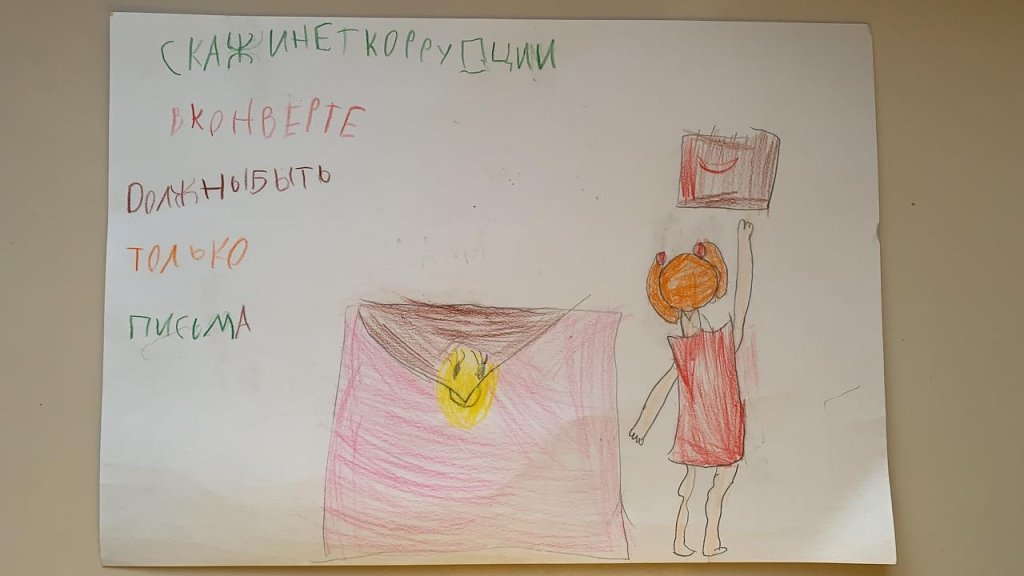 СКАЖИНЕТКОРРУПЦИИ
ВКОНВЕРТЕ
DОЛЖНЫБЫТЬ
ТОЛЬКО
ПИСЬМА